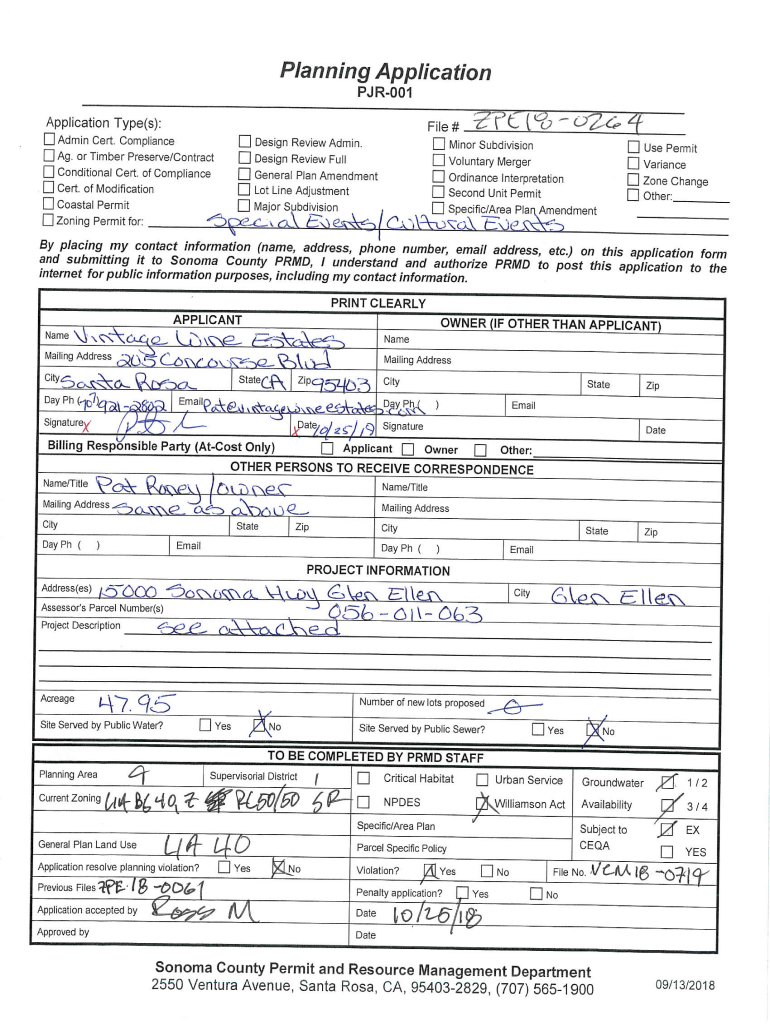 Planning Application
PJR-001
Application Type(s):
File # ZPE18-0264
Admin Cert. Compliance
Ag. or Timber Preserve/Contract
Conditional Cert. of Compliance
Cert. of Modification
Coastal Permit
Design Review Admin.
Design Review Full
General Plan Amendment
Lot Line Adjustment
Major Subdivision
Minor Subdivision
Voluntary Merger
Ordinance Interpretation
Second Unit Permit
Specific/Area Plan Amendment
Use Permit
Variance
Zone Change
Other:
Zoning Permit for: Special Events/Cultural Events
By placing my contact information (name, address, phone number, email address, etc.) on this application form
and submitting it to Sonoma County PRMD, I understand and authorize PRMD to post this application to the
internet for public information purposes, including my contact information.
PRINT CLEARLY
APPLICANT OWNER (IF OTHER THAN APPLICANT)
Name Vintage Wine Estates Name
Mailing Address 205 Concourse Blvd Mailing Address
City Santa Rosa State CA Zip 95403 City State Zip
Day Ph (707) 921-2802 Email Pat@vintagewineestates.com Day Ph ( ) Email
Signature X X Date 10/25/18 Signature Date
Billing Responsible Party (At-Cost Only) Applicant Owner Other:
OTHER PERSONS TO RECEIVE CORRESPONDENCE
Name/Title Pat Roney/owner Name/Title
Mailing Address same as above Mailing Address
City State Zip City State Zip
Day Ph ( ) Email Day Ph ( ) Email
PROJECT INFORMATION
Address(es) 15000 Sonoma Hwy Glen Ellen City Glen Ellen
Assessor's Parcel Number(s) 056-011-063
Project Description see attached
Acreage 47.95 Number of new lots proposed 0
Site Served by Public Water? Yes No Site Served by Public Sewer? Yes No
TO BE COMPLETED BY PRMD STAFF
Planning Area 9 Supervisorial District 1 Critical Habitat Urban Service Groundwater 1 / 2
Current Zoning LIA B6 40, Z RC50/50 SR NPDES Williamson Act Availability 3 / 4
Specific/Area Plan Subject to CEQA EX
General Plan Land Use LIA 40 Parcel Specific Policy YES
Application resolve planning violation? Yes No Violation? Yes No File No. VCM18-0719
Previous Files ZPE18-0061 Penalty application? Yes No
Application accepted by Ross M Date 10/25/18
Approved by Date
Sonoma County Permit and Resource Management Department
2550 Ventura Avenue, Santa Rosa, CA, 95403-2829, (707) 565-1900 09/13/2018